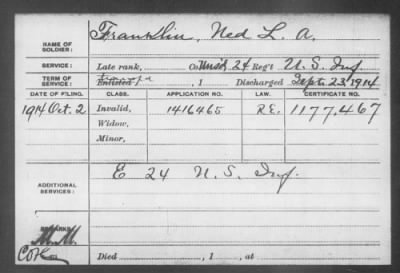 NAME OF SOLDIER: Franklin, Ned L. A.
SERVICE: Late rank, Co. 24 Reg't U. S. Inf.
TERM OF SERVICE: Enlisted , 1 Discharged Sept. 23, 1914
DATE OF FILING. CLASS. APPLICATION NO. LAW. CERTIFICATE NO.
1914 Oct. 2 Invalid, 1416465 R.E. 1177,467
Widow,
Minor,
ADDITIONAL SERVICES: E 24 U. S. Inf.
REMARKS:
Died , 1 , at